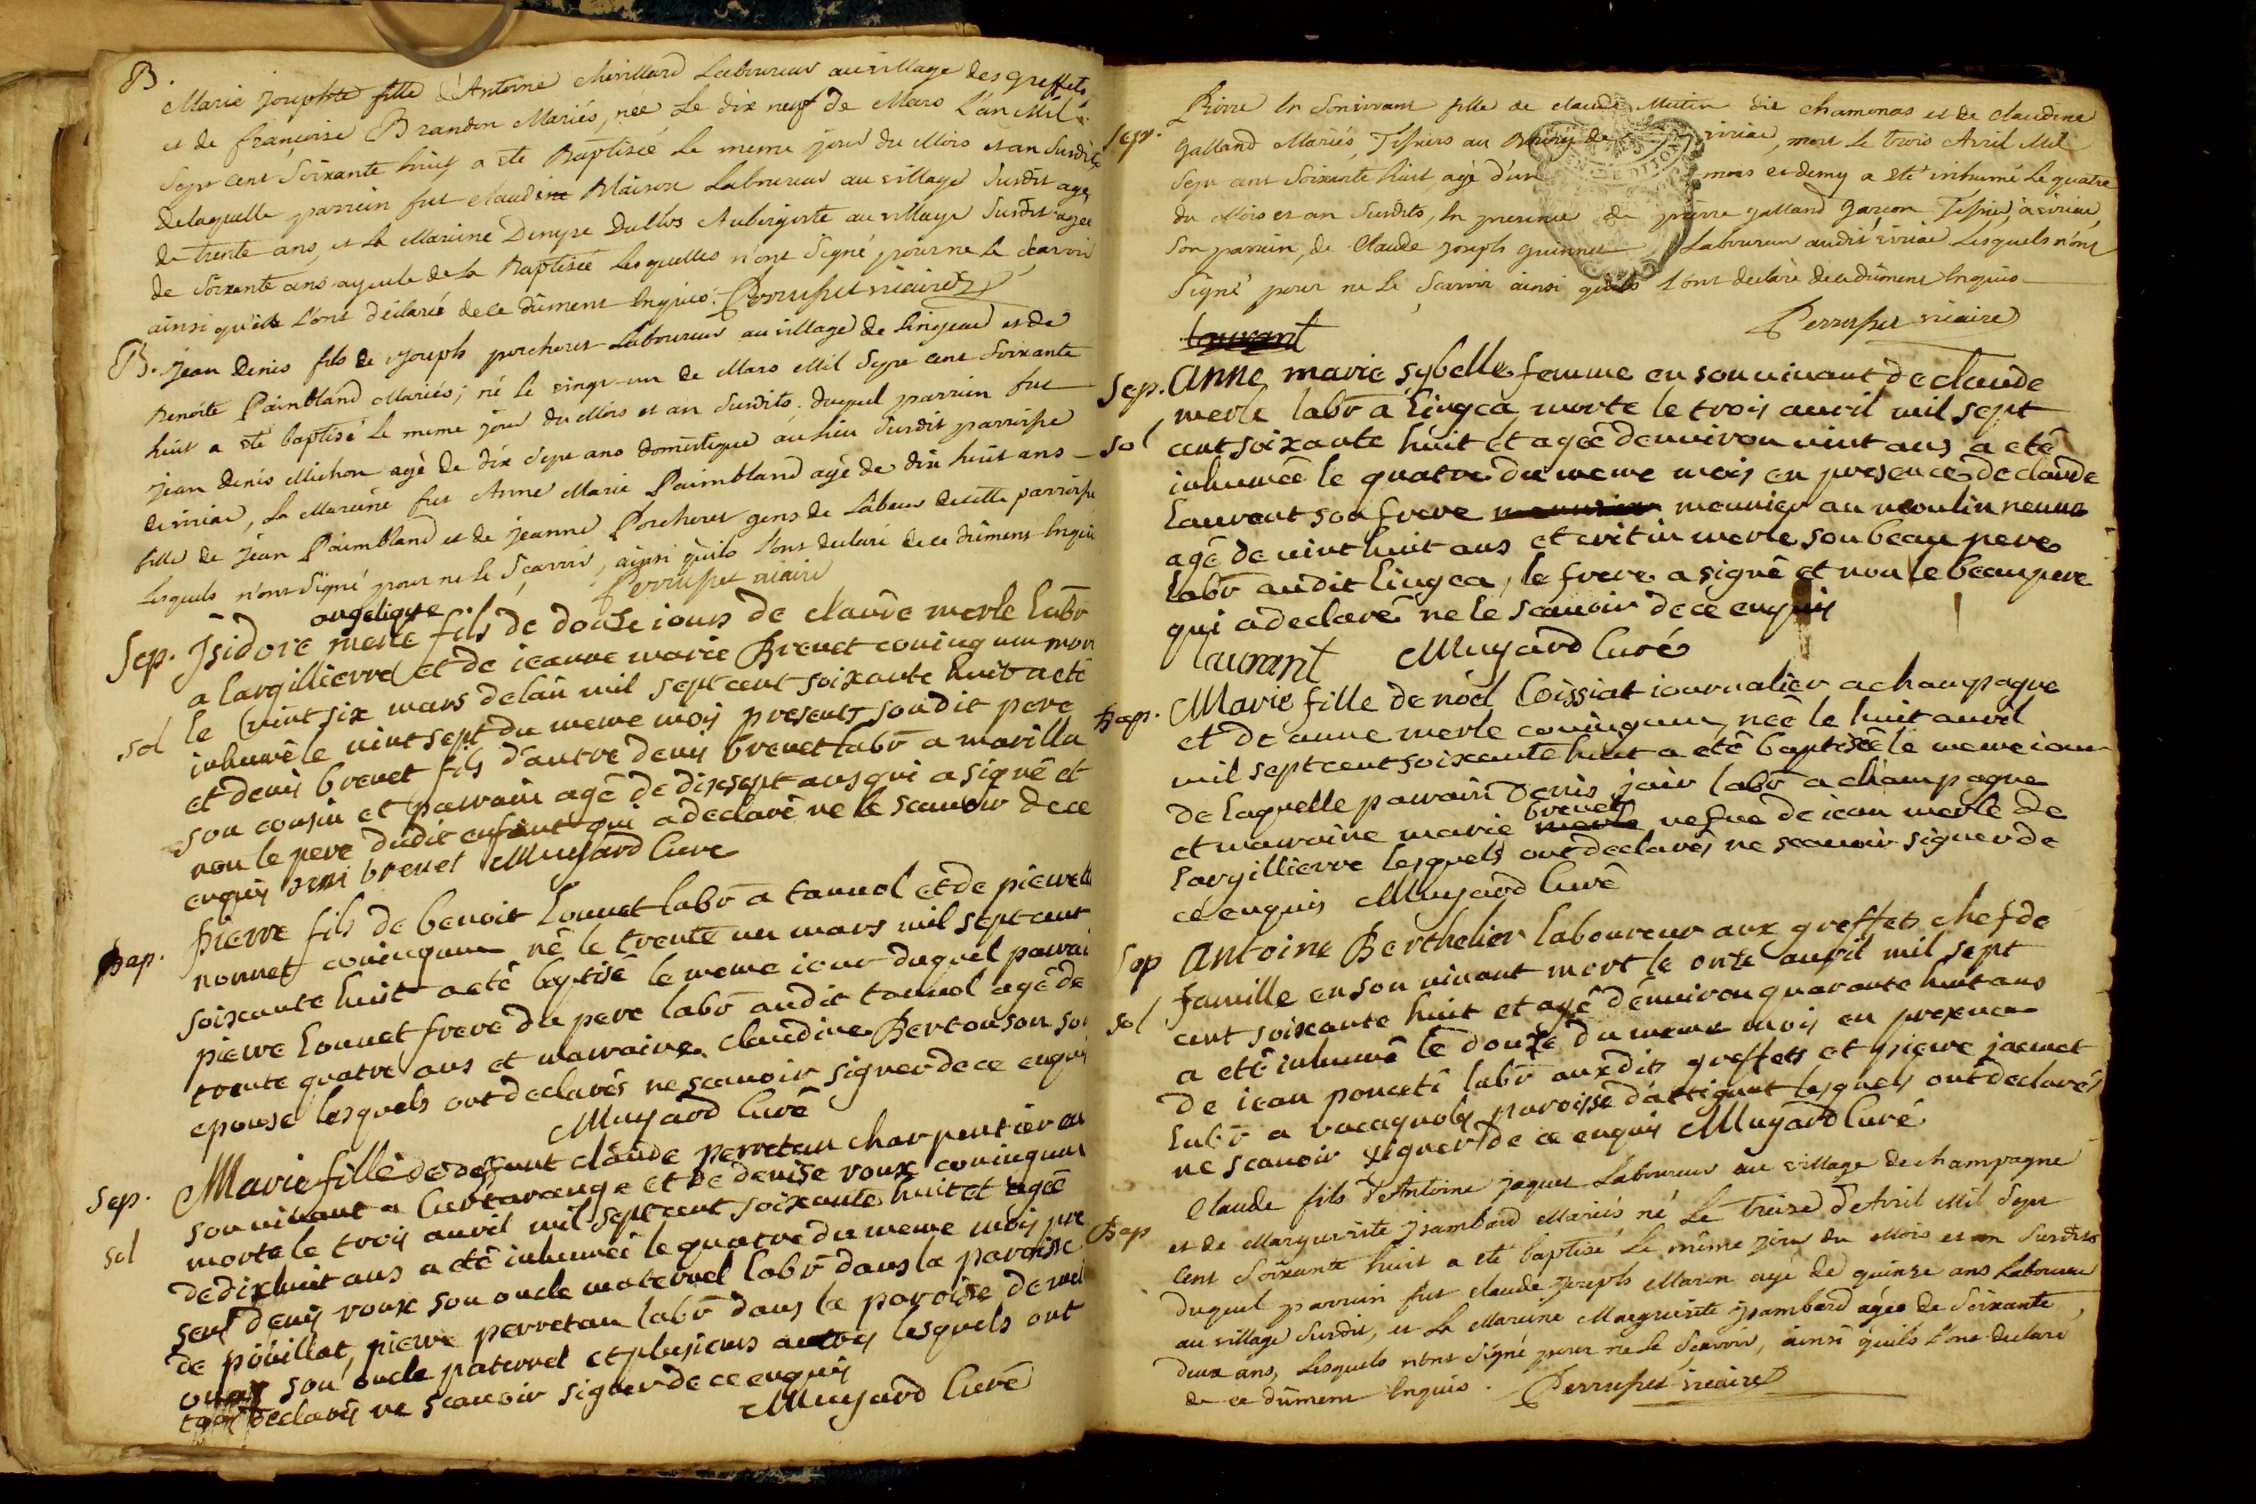 B.
Marie Josephte fille d'Antoine chevillard Laboureur au village des greffets
et de françoise Brandon Mariés, née Le dix neuf de Mars L'an Mil
Sept cent Soixante huit a été Baptisée Le meme jour du Mois et an Susdits
delaquelle parrein fut claudine Blaison Laboureur au village Susdit agé
de trente ans, et La Mareine Denyse Dublos Aubergiste au village Susdit agée
de Soixante ans ayeule de la Baptisée Lesquelles n'ont Signé pour ne Le sçavoir
ainsi qu'ils L'ont déclaré de ce dûment Enquis. Perruset vicaire
B. Jean denis fils de Joseph porcheret Laboureur au village de Lingeat et de
Benoite Paimbland Mariés; né Le vingt-un de Mars Mil Sept cent Soixante
huit a été baptisé Le meme jour du Mois et an Susdits. duquel parrein fut
Jean denis Michon agé de dix Sept ans domestique au lieu Susdit parroisse
de viriat, La Mareine fut Anne Marie Paimbland agé de dix huit ans
fille de Jean Paimbland et de Jeanne Porcheret gens de Labeur de cette parroisse
Lesquels n'ont Signé pour ne le Sçavoir, ainsi qu'ils l'ont declaré de ce dûment Enquis
Perruset vicaire
angelique
Sep. Isidore merle fils de douze iours de claude merle labr
a largillierre et de ieanne marie Brevet coniugum mort
sol le vint six mars de lan mil sept cent soixante huit a eté
inhumé le vint sept du meme mois presents sondit pere
et denis brevet fils d'autre denis brevet labr a marilla
son cousin et parrain agé de dix sept ans qui a signé et
non le pere dudit enfant qui a declaré ne le scavoir de ce
enquis deni brevet Muyard Curé
Bap. Pierre fils de benoit Louvet labr a tannol et de pierrette
nonnet coniugum né le trente un mars mil sept cent
soixante huit a eté baptisé le meme iour duquel parrain
pierre Louvet frere du pere labr audit tannol agé de
trente quatre ans et marraine claudine Bertonson son
epouse lesquels ont declarés ne scavoir signer de ce enquis
Muyard Curé
Sep. Marie fille de defunt claude perretan charpentier en
son vivant a Curtarange et de denise roux coniugum
sol morte le trois avril mil sept cent soixante huit et agée
de dix huit ans a eté inhumée le quatre du meme mois pre
sent denis roux son oncle maternel labr dans la paroisse
de pouillat, pierre perretan labr dans la paroisse de
son oncle paternel et plusieurs autres lesquels ont
declarés ne scavoir signer de ce enquis
Muyard Curé
Pierre En Sonvivant fille de claude Mutin dit chamonas et de claudine
Sep. Galland Mariés, Tissiers au Bourg de viriat, mort Le trois Avril Mil
Sept cent Soixante huit, agé d'un mois et demy a été inhumé Le quatre
du Mois et an Susdits, En presence de pierre galland garçon Tissier, a viriat,
Son parrein, de Claude Joseph guinnet Laboureur audit viriat Lesquels n'ont
Signé pour ne Le Sçavoir ainsi qu'ils L'ont declaré de ce dûment Enquis
Perruset vicaire
laurant
Sep. Anne marie sybelle femme en son vivant de claude
merle labr a lingea morte le trois avril mil sept
sol cent soixante huit et agée denviron vint ans a eté
inhumée le quatre du meme mois en presence de claude
Laurent son frere meunier au moulin neuf
agé de vint huit ans et merle son beau pere
labr audit lingea, le frere a signé et non le beau pere
qui a declaré ne le scavoir de ce enquis
laurant Muyard Curé
Bap. Marie fille de nöel Loissiat iournalier a champagne
et de anne merle coniugum, née le huit avril
mil sept cent soixante huit a eté baptisée le meme iour
de laquelle parrain denis jair labr a champagne
brevet
et marraine marie merle vefve de iean merle de
largillierre lesquels ont declarés ne scavoir signer de
ce enquis Muyard Curé
Sep Antoine Berthelier laboureur aux greffets chef de
famille en son vivant mort le onze avril mil sept
sol cent soixante huit et agé denviron quarante huit ans
a eté inhumé le douze du meme mois en presence
de iean poncéti labr auxdits greffets et pierre jaemet
labr a vacagnole paroisse dattignat lesquels ont declarés
ne scavoir signer de ce enquis Muyard Curé
Claude fils d'Antoine jaquet Laboureur au village de champagne
Bap et de Marguerite Jsambard Mariés né Le treize d'Avril Mil Sept
Cent Soixante huit a été baptisé Le même jour du Mois et an Susdits
Duquel parrein fut claude Joseph Maron agé de quinze ans Laboureur
au village Susdit, et La Mareine Marguerite Jsambard agée de Soixante
deux ans, Lesquels n'ont Signé pour ne Le Sçavoir, ainsi qu'ils L'ont declaré
de ce dûment Enquis. Perruset vicaire